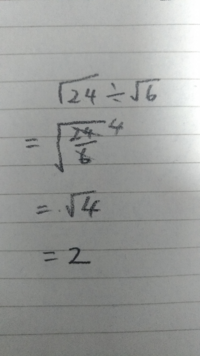 √24 ÷ √6
= √(24/6) 4
= √4
= 2